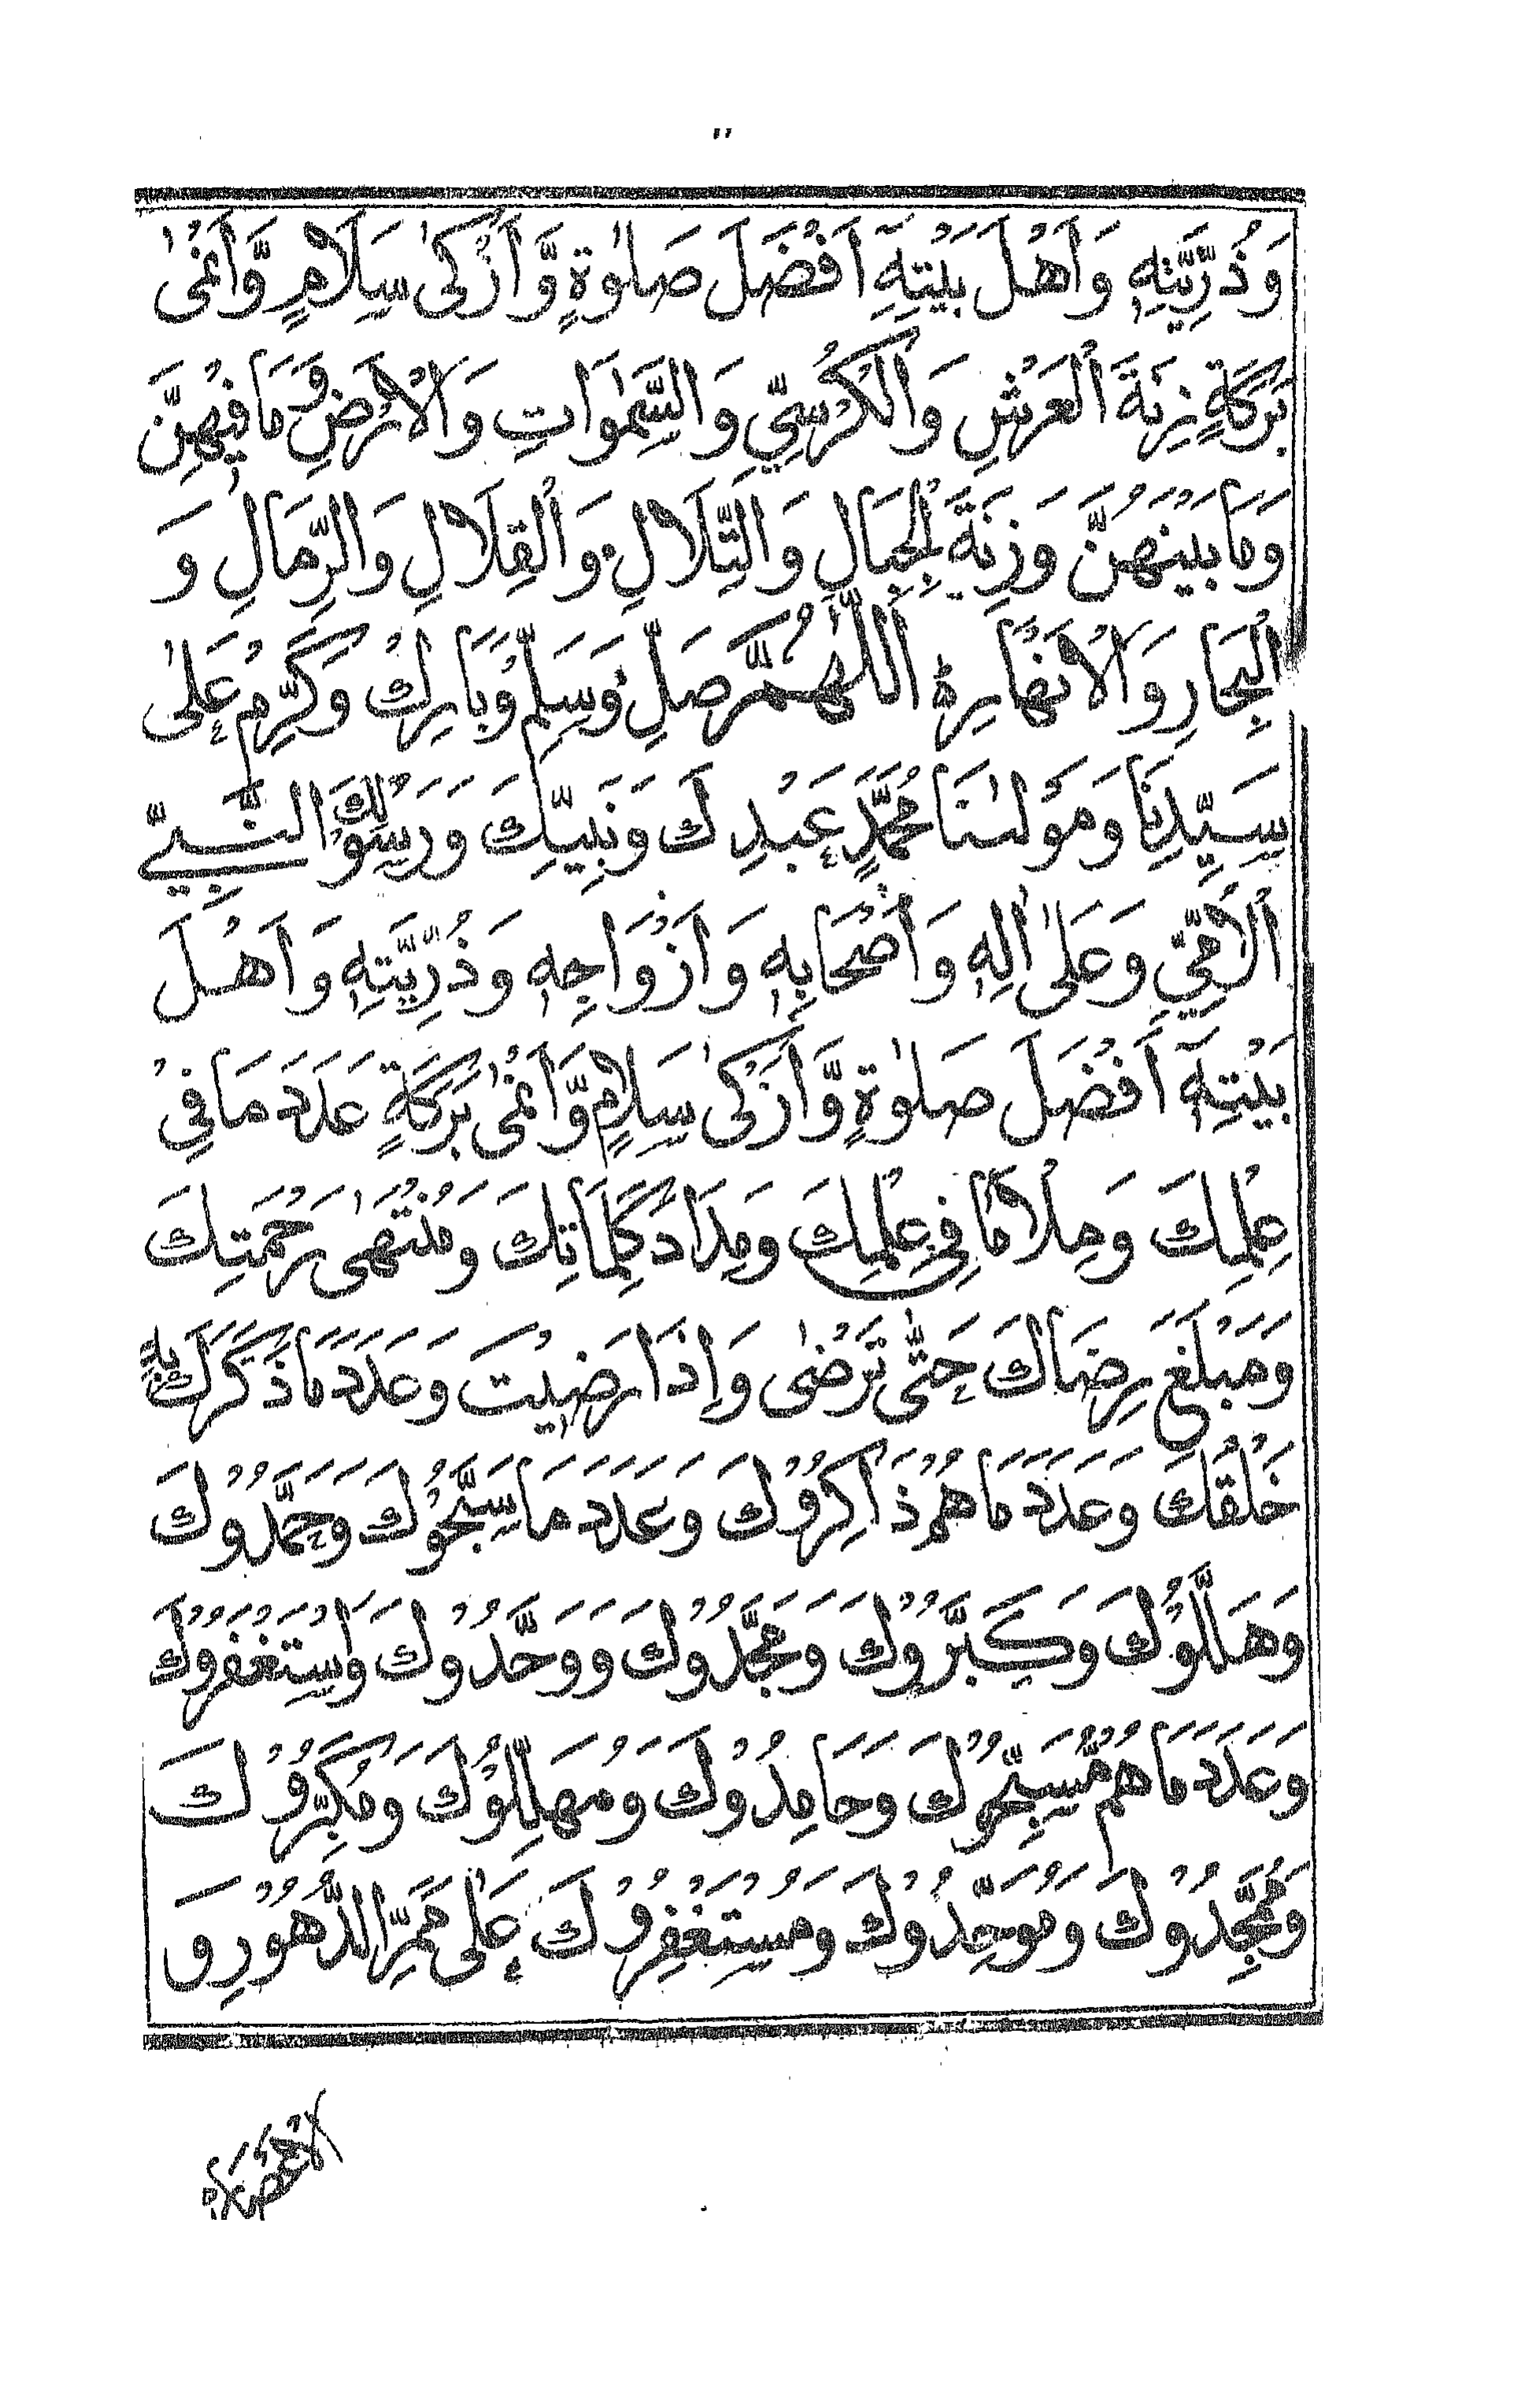 وَذُرِّيَّتِهٖ وَاَهْلَ بَيْتِهٖٓ اَفْضَلَ صَلٰوةٍ وَّاَزْكٰى سَلَامٍ وَّاَنْمٰى
بَرَكَةٍ زِنَةَ الْعَرْشِ وَالْكُرْسِيِّ وَالسَّمٰوَاتِ وَالْاَرْضِ وَمَا فِيْهِنَّ
وَمَا بَيْنَهُنَّ وَزِنَةَ الْجِبَالِ وَالتِّلَالِ وَالْقِلَالِ وَالرِّمَالِ وَ
الْبِحَارِ وَالْاَنْهَارِ اَللّٰهُمَّ صَلِّ وَسَلِّمْ وَبَارِكْ وَكَرِّمْ عَلٰى
سَيِّدِنَا وَمَوْلٰىنَا مُحَمَّدٍ عَبْدِكَ وَنَبِيِّكَ وَرَسُوْلِكَ النَّبِيِّ
الْاُمِّيِّ وَعَلٰى اٰلِهٖ وَاَصْحَابِهٖ وَاَزْوَاجِهٖ وَذُرِّيَّتِهٖ وَاَهْلَ
بَيْتِهٖٓ اَفْضَلَ صَلٰوةٍ وَّاَزْكٰى سَلَامٍ وَّاَنْمٰى بَرَكَةٍ عَدَدَ مَا فِيْ
عِلْمِكَ وَمِلْاَ مَا فِيْ عِلْمِكَ وَمِدَادَ كَلِمَاتِكَ وَمُنْتَهٰى رَحْمَتِكَ
وَمَبْلَغَ رِضَاكَ حَتّٰى تَرْضٰى وَاِذَا رَضِيْتَ وَعَدَدَ مَا ذَكَرَكَ بِهٖ
خَلْقُكَ وَعَدَدَ مَا هُمْ ذَاكِرُوْكَ وَعَدَدَ مَا سَبَّحُوْكَ وَحَمَّدُوْكَ
وَهَلَّلُوْكَ وَكَبَّرُوْكَ وَمَجَّدُوْكَ وَوَحَّدُوْكَ وَاسْتَغْفَرُوْكَ
وَعَدَدَ مَا هُمْ مُّسَبِّحُوْكَ وَحَامِدُوْكَ وَمُهَلِّلُوْكَ وَمُكَبِّرُوْكَ
وَمُمَجِّدُوْكَ وَمُوَحِّدُوْكَ وَمُسْتَغْفِرُوْكَ عَلٰى مَمَرِّ الدُّهُوْرِ وَ